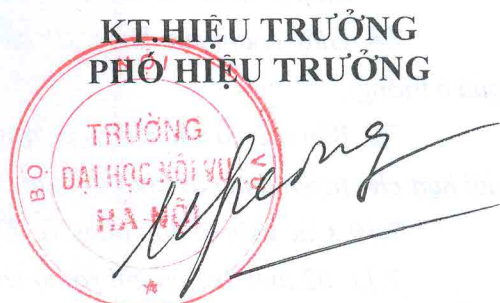 KT.HIỆU TRƯỞNG
PHÓ HIỆU TRƯỞNG
BỘ NỘI VỤ
TRƯỜNG
ĐẠI HỌC NỘI VỤ
HÀ NỘI